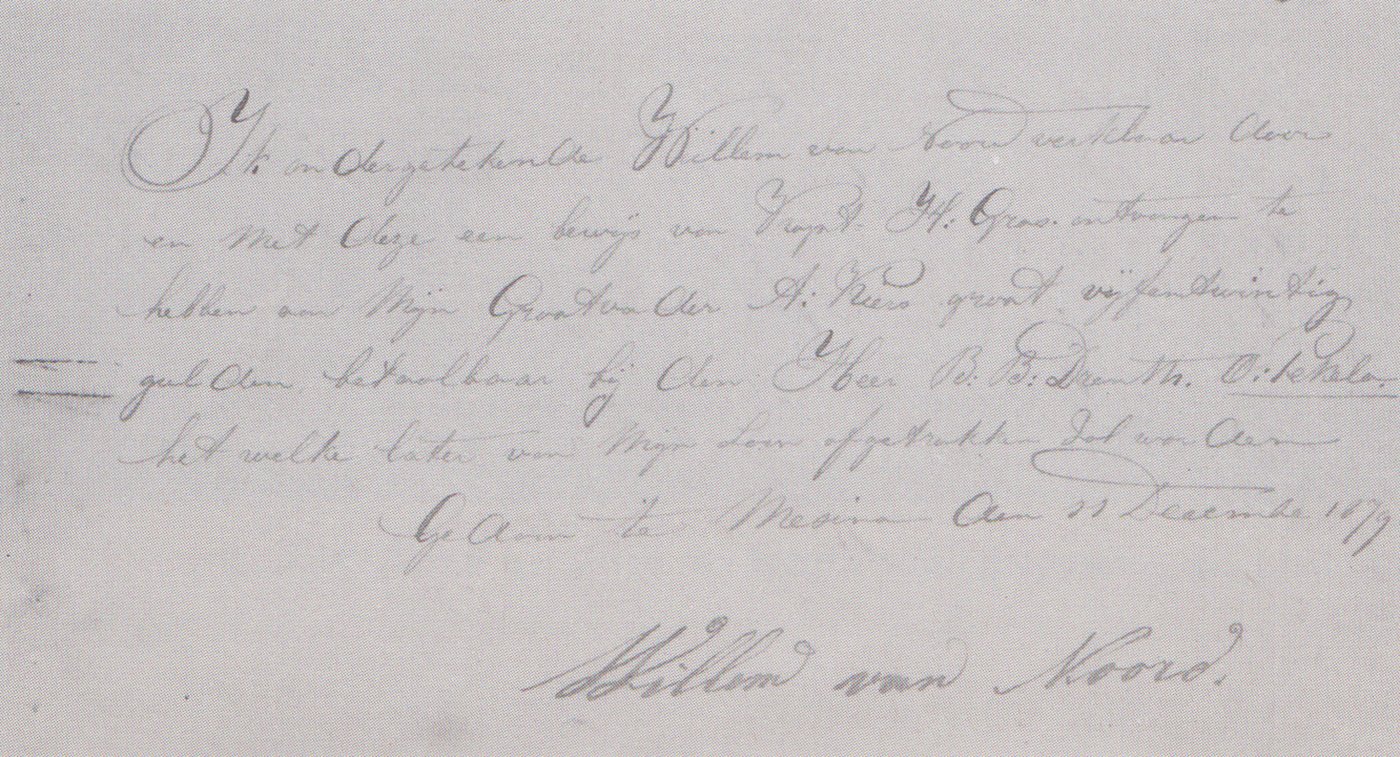 Ik ondergetekende Willem van Noord verklaar door
en met deze een bewijs van Kapt. H: Gras. ontvangen te
hebben aan Mijn Grootvader A: Kiers groot vijfentwintig
gulden betaalbaar bij den Heer B: B: Drenth. O: Pekela.
het welke later van Mijn Loon afgetrokken zal worden
Gedaan te Mesina den 11 Decembe 1879
Willem van Noord.